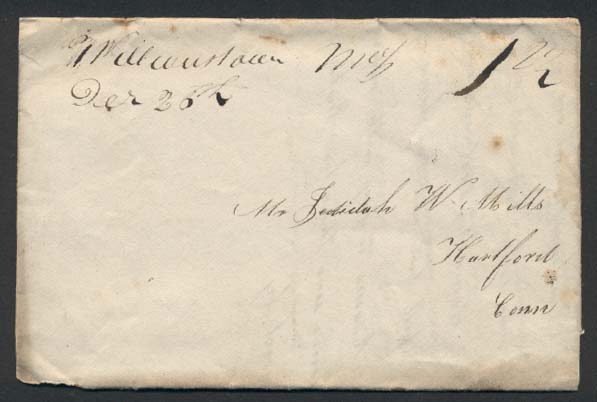 Williamstown Mass 12 1/2
Dec 26th
Mr Jedidah W. Mills
Hartford
Conn